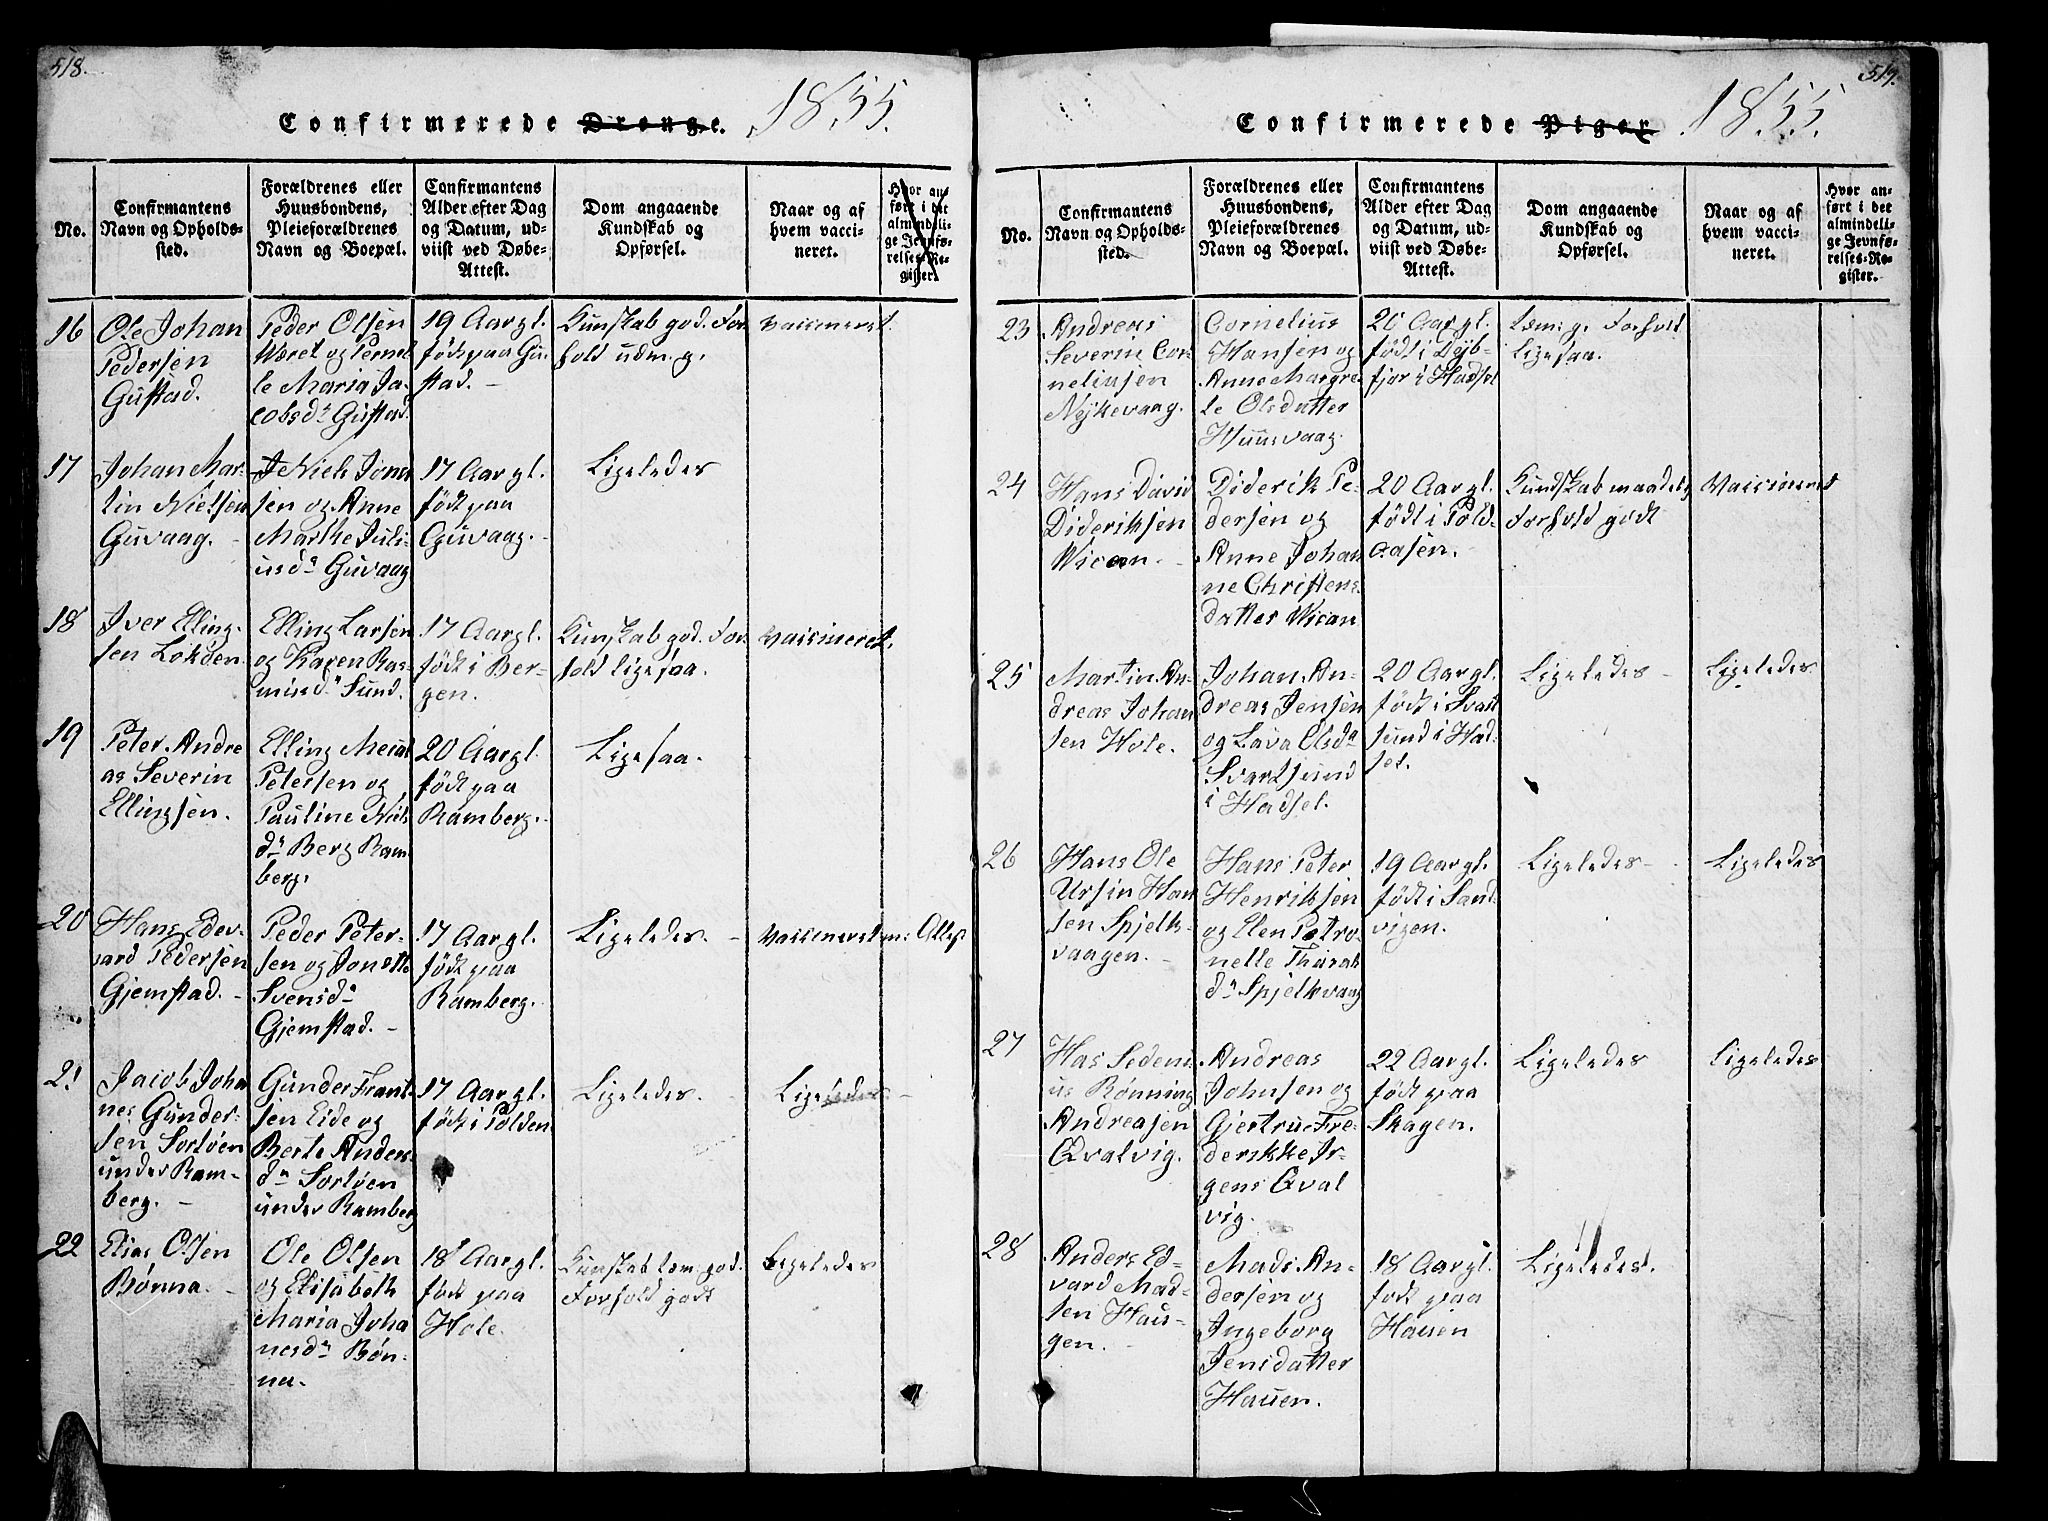 518.
Confirmerede Drenge. 1855.
No.
Confirmantens
Navn og Opholds-
sted.
Forældrenes eller
Huusbondens,
Pleieforældrenes
Navn og Boepæl.
Confirmantens
Alder efter Dag
og Datum, ud-
viist ved Døbe-
Attest.
Dom angaaende
Kundskab og
Opførsel.
Naar og af
hvem vacci-
neret.
Hvor an-
ført i det
almindeli-
ge Jevnfø-
relses-Re-
gister.
16
Ole Johan
Pedersen
Gustad.
Peder Olsen
Været og Pernel
le Maria Ja-
cobsdr Gustad.
19 Aar gl.
født paa Gu-
stad. -
Kunskab god. For
hold udm. g.
Vaccineret.
17
Johan Mar-
tin Nielsen
Guvaag. -
Niels Jona
sen og Anne
Marthe Juli-
usdr Guvaag
17 Aar gl.
født paa
Guvaag. -
Ligeledes
18
Iver Elling-
sen Lokøen.
Elling Larsen
og Karen Ras-
musdr Sund.
17 Aar gl.
født i Ber-
gen.
Kunskab god. For
hold ligesaa.
Vaccineret.
19
Peter Andre
as Severin
Ellingsen.
Elling
Petersen og
Pauline Niels
dr Berg Ram-
berg.
20 Aar gl.
født paa
Ramberg. -
Ligesaa.
20
Hans Edev-
ard Pedersen
Gjemstad. -
Peder Peter-
sen og Jonette
Svensdr
Gjemstad. -
17 Aar gl.
født paa
Ramberg.
Ligeledes. -
Vaccineret m: Attest
21
Jacob Joha
nes Gunder-
sen Sortøen
under Ram-
berg. -
Gunder Frant-
sen Eide og
Berte Anders
dr Sortøen
under Ramberg
17 Aar gl.
født i Polden
Ligeledes. -
Ligeledes -
22
Elias Olsen
Bønna. -
Ole Olsen
og Elisabeth
Maria Joha
nesdr Bøn-
na.
18 Aar gl.
født paa
Hole.
Kunskab tem: god.
Forhold godt
Ligeledes
519.
Confirmerede Piger 1855.
No.
Confirmantens
Navn og Opholds-
sted.
Forældrenes eller
Huusbondens,
Pleieforældrenes
Navn og Boepæl.
Confirmantens
Alder efter Dag
og Datum, ud-
viist ved Døbe-
Attest.
Dom angaaende
Kundskab og
Opførsel.
Naar og af
hvem vacci-
neret.
Hvor an-
ført i det
almindeli-
ge Jevnfø-
relses-Re-
gister.
23
Andreas
Severin Cor
neliusen
Nykevaag.
Cornelius
Hansen og
Anne Margre
te Olsdatter
Huusvaag
20 Aar gl.
født i Dejb-
fjor i Hadsel
tem: g. Forhold
ligesaa.
24
Hans David
Dideriksen
Vican. -
Diderik Pe-
dersen og
Anne Johan
ne Christens
datter Vican
20 Aar gl.
født i Pold-
aasen. -
Kundskab maadelig
Forhold godt
Vaccineret
25
Martin An-
dreas Johan
sen Hole. -
Johan An-
dreas Jensen
og Lava Elsdr
Svartsund
i Hadsel.
20 Aar gl.
født i Svart
sund i Had-
sel.
Ligeledes -
Ligeledes
26
Hans Ole
Ursin Han
sen Spjelk-
vaagen. -
Hans Peter
Henriksen
og Elen Petro-
nelle
dr Spjelkvaag
19 Aar gl.
født i Sand-
vigen.
Ligeledes -
Ligeledes
27
Has Sedeni
us Rønning
Andreasen
Qvalvig.
Andreas
Johnsen og
Gjertru Fre-
derikke Jr-
gens Qval
vig.
22 Aar gl.
født paa
Skagen.
Ligeledes
Ligeledes
28
Anders Ed-
vard Mad-
sen Hau-
gen. -
Mads An-
dersen og
Ingeborg
Jensdatter
Hauen.
18 Aar gl.
født paa
Hauen
Ligeledes.